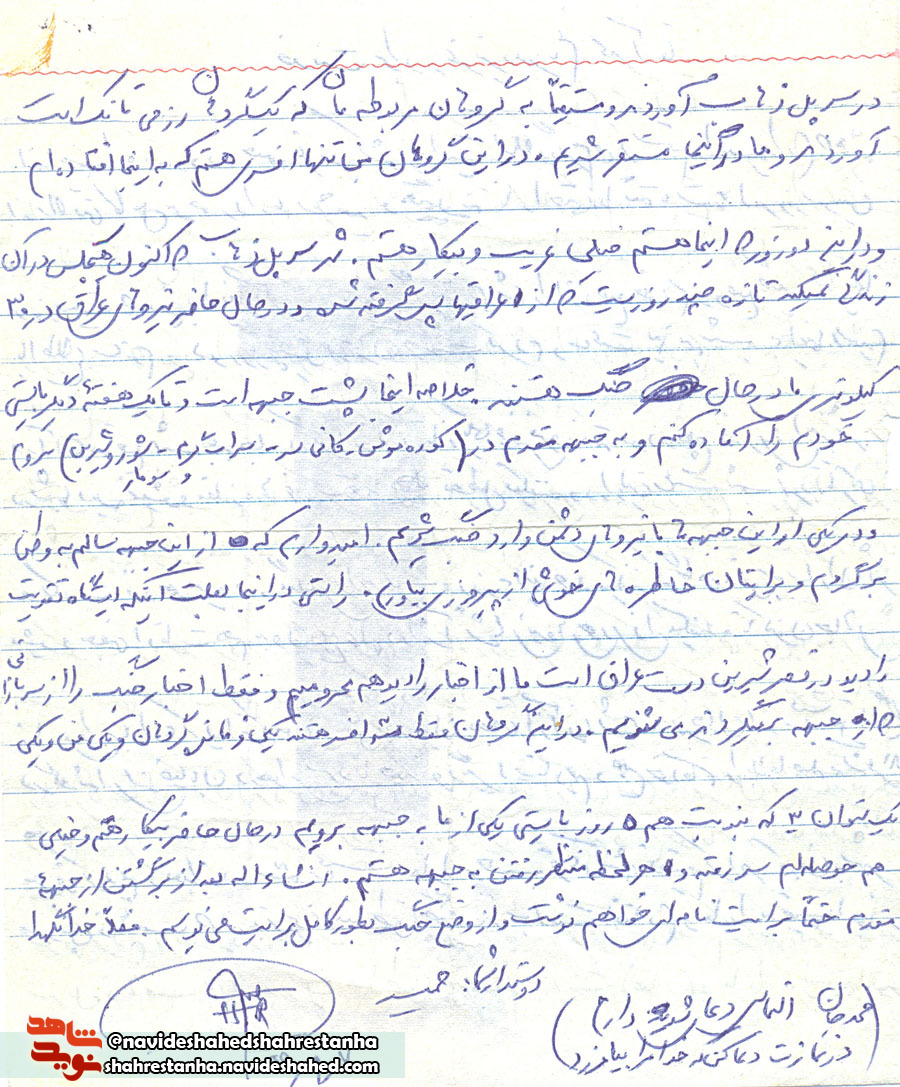 در سرپل ذهاب آوردند و مستقیماً به گروهان مربوطه مان که یک گردان رزمی تانک است
آوردند و ما در اینجا مستقر شدیم. در این گروهان من تنها افسری هستم که به اینجا افتاده ام
و در این دو روز که اینجا هستم خیلی غریب و بیکار هستم. شهر سرپل ذهاب که اکنون هیچکس در آن
زندگی نمیکند تازه چند روزیست که از عراقیها پس گرفته شده و در حال حاضر نیروهای عراق در ۳۰
کیلومتری ما در حال جنگ هستند. خلاصه اینجا پشت جبهه است و تا یک هفتهٔ دیگر بایستی
خودم را آماده کنم و به جبهه مقدم در (کوره موش - کانی - سراب گرم - شور و شیرین) بروم
و سومار
و در یکی از این جبهه ها با نیروهای دشمن وارد جنگ شویم. امیدوارم که از این جبهه سالم به وطن
برگردم و برایتان خاطره های خوشی از پیروزی بیاورم. راستی در اینجا بعلت اینکه ایستگاه تقویت
رادیو در قصر شیرین دست عراق است ما از اخبار رادیو هم محرومیم و فقط اخبار جنگ را از سربازانی
که از جبهه برمیگردند می شنویم. در این گروهان فقط سه افسر هستند یکی فرمانده گروهان و یکی من و یکی
یک ستوان ۳ که بنوبت هم ۵ روز بایستی یکی از ما به جبهه برویم در حال حاضر بیکار هستم و خیلی
هم حوصله ام سر رفته و هر لحظه منتظر رفتن به جبهه هستم. انشاءاله بعد از برگشتن از جبههٔ
مقدم حتماً برایت نامه ای خواهم نوشت و از وضع جنگ بطور کامل برایت می نویسم. فعلاً خدانگهدار
دوستدار شما: حمید
(محمد جان التماس دعا دارم
در نمازت دعا کن که خدا مرا بیامرزد)
شاهد
نوید
@navideshahedshahrestanha
shahrestanha.navideshahed.com